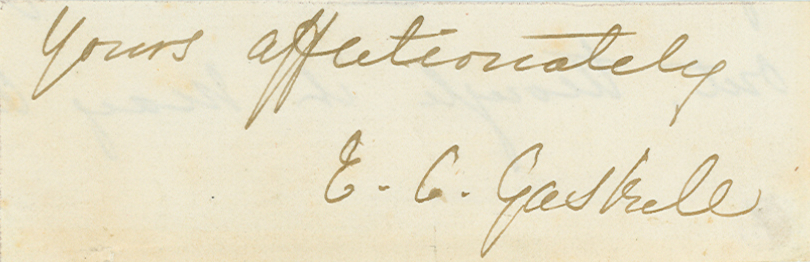 Yours affectionately
E. C. Gaskell